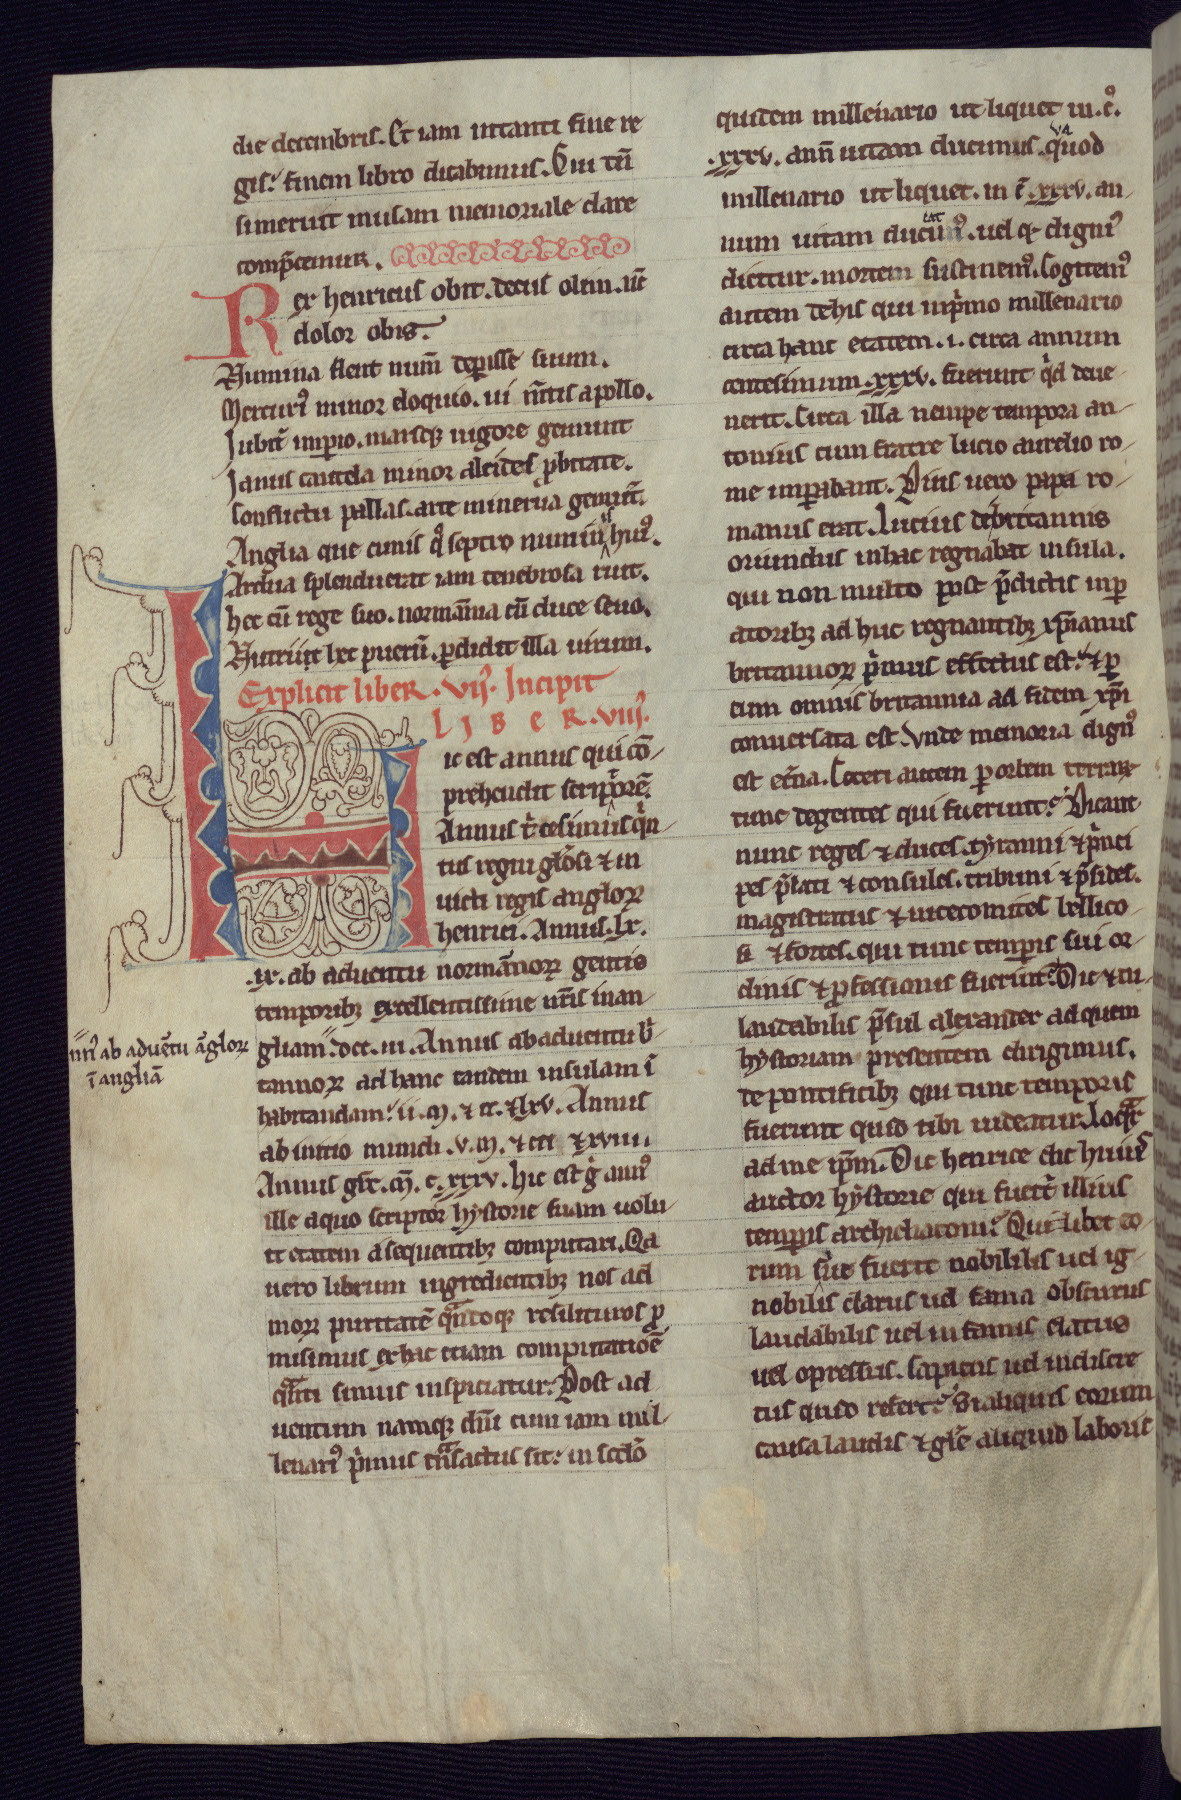 die decembris. Et iam intanti fine re
gis: finem libro dicabimus. Cui tũ
simeruit musam memoriale clare
comp̃cemur.
Rex henricus obit. decus olim. nc̃
dolor obis.
Numina flent num̃ deperisse suum.
Mercuri᷒ minor eloquio. ui m̃tis apollo.
Iubit̃ imperio. marsq; uigore gemunt
Ianus cautela minor alcides p̃bitate.
Conflictu pallas. arte minerua gemũt.
Anglia que cunis q̃ sceptro numinis hui᷒.
Ardua splenduerat iam tenebrosa ruit.
hec cũ rege suo. normãnia cũ duce seuo.
Nutriuit hec puerũ. perdidit illa uirum.
Explicit liber. vii᷒. Incipit
LIBER. viii᷒.
Hic est annus qui cõ-
prehendit scriptorẽ.
Annus t̃cesimus q̃n-
tus regni gl̃osi & in
uicti regis angloꝝ
henrici. Annus. lx.
.ix. ab aduentu normãnoꝝ gentis
temporibꝫ excellentissime nr̃is inan-
gliam. dcc. iii. Annus ab aduentu bˡ-
tannoꝝ ad hanc tandem insulam ĩ
habitandam. ii. m̃. & cc. & lxv. Annus
ab initio mundi. v. m̃. & ccc & xviii.
Annus gr̃e. m̃. c. xxxv. hic est g̃ ann᷒
ille a quo scriptor hystorie suam uolu-
it etatem a sequentibꝫ computari. Qa
uero librum ingredientibꝫ nos ad
moꝝ puritatẽ qñdoq; resilituros p̃
misimus ex hac etiam computatiõe
q̃nti simus inspiciatur. Post ad
uentum namq; dñi cum iam mil-
lenari᷒ p̃mus tñsactus sit: in scdõ
iiii᷒ ab aduẽtu ãgloꝝ
ĩ angliã
quidem millenario ut liquet in. c᷒.
.xxxv. anñ uitam ducimus. quod
va
millenario ut liquet. in c̃ .xxxv. an-
num uitam ducim᷒. uel q̃ digni᷒
dicitur. mortem sustinem᷒. Cogitem᷒
autem de his qui inp̃mo millenario
circa hanc etatem. i. circa annum
centesimum .xxxv. fuerunt q̃d deue-
nerit. Circa illa nempe tempora an-
tonius cum fratre lucio aurelio ro-
me imperabant. Pius uero papa ro-
manus erat. Lucius de britannis
oriundus in hac regnabat insula.
qui non multo post p̃dictis imp
atoribꝫ ad huc regnantibꝫ xp̃ianus
britannoꝝ p̃mus effectus est: & p
eum omnis britannia ad fidem xp̃i
conuersata est. Vnde memoria dign᷒
est et̃na. Ceteri autem per orbem terraꝝ
tunc degentes qui fuerunt? Dicant
nunc reges & duces. tyranni & p̃nci
pes p̃lati & consules. tribuni & p̃sides.
magistratus & uicecomites bellico-
si & fortes. qui tunc temporis sui or-
dinis & p̃fessionis fuerunt? Dic & tu
laudabilis p̃sul alexander ad quem
hystoriam presentem dirigimus.
de pontificibꝫ qui tunc temporis
fuerunt quid tibi uideatur. Loq̃r
ad me ip̃m. Dic henrice dic huius
auctor hystorie qui fuert̃ illius
temporis archidiaconi? Qui libet eo-
rum siue fuerit nobililis uel ig-
nobilis clarus uel fama obscurus
laudabilis uel infamis elatus
uel opressus. sapiens uel indiscre
tus quid refert? Si aliquis eorum
causa laudis & gl̃e aliquid laboris